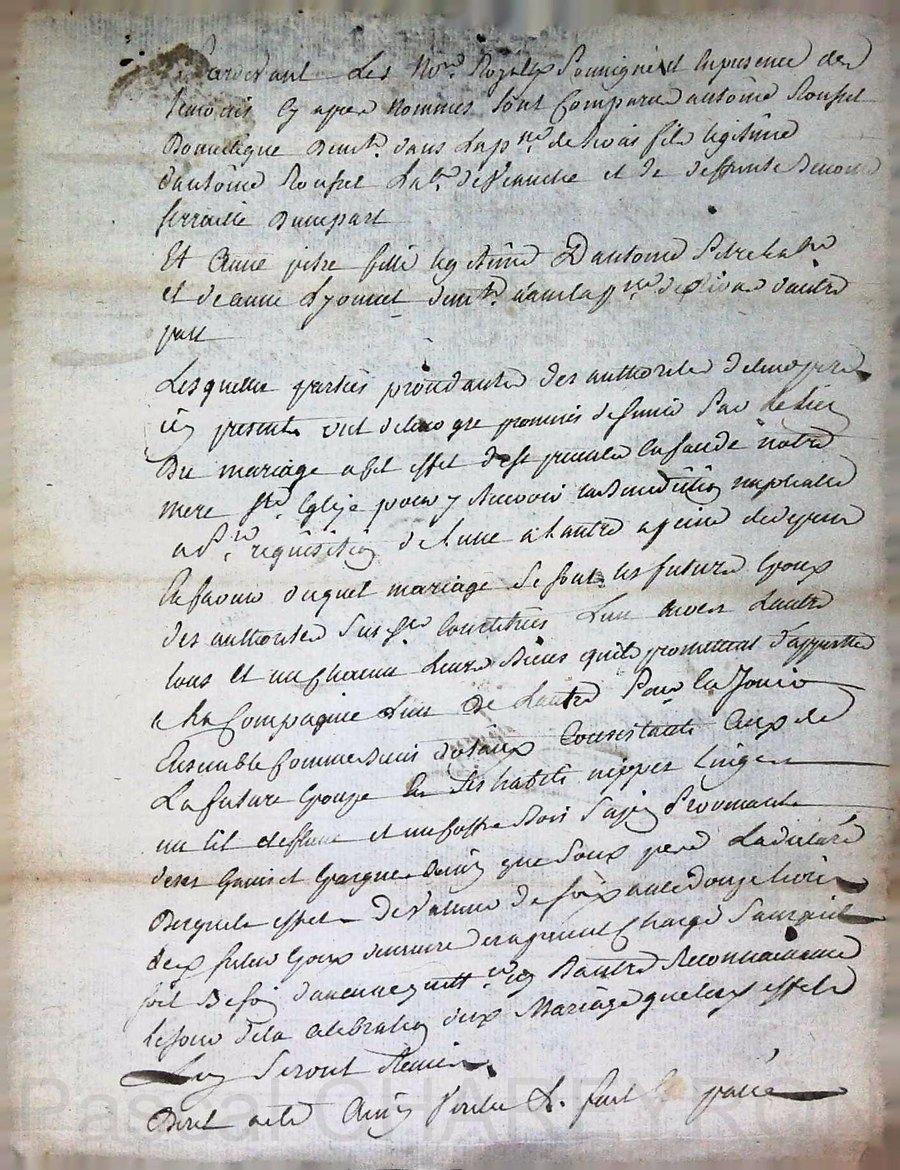 Pardevant Les No.rs Royaux Soussignés et en presence des
temoins Cy apres Nommes sont Comparus antoine Rousset
Domestique demt. dans la p.sse de fils legitime
d'antoine Rousset Lab.r de et de deffunte
d'une part
Et Anne pitre fille legitime D'antoine Pitre Lab.r
et de anne Lyonnet dem.t dans la p.sse de d'autre
part
Lesquelles parties procedantes des authorites de leurs peres
icy presents ont de leur gre promis de s'unir Par le lien
Du mariage a cet effet de se presenter en face de notre
mere S.te Eglise pour y recevoir la Benediction nuptiale
a p.re requisition de l'une a l'autre a peine de depens
En faveur duquel mariage se sont les futurs Epoux
des authorites Sus d.tes Constitues L'un envers L'autre
tous Et un chacun Leurs Biens qu'ils promettent d'apporter
a la Compagnie L'un de L'autre Pour en Jouir
Ensemble Comme biens dotaux Consistants Ceux de
La future Epouse En ses habits nippes Linges
un lit et un coffre Bois Sapin Provenants
de ses Gains et Epargnes ainsi que Sous
Desquels effets De Valeur de soixante douze livres
Le d. futur Epoux demeure des a present Charge Sans qu'il
soit Besoin d'aucune quitt.ce ny d'autre Reconnaissance
le jour de la Celebration du d. Mariage que les d. effets
Luy Seront Remis
Dont acte Ainsi Voulu & fait & passé
Pascal CHARLYRON